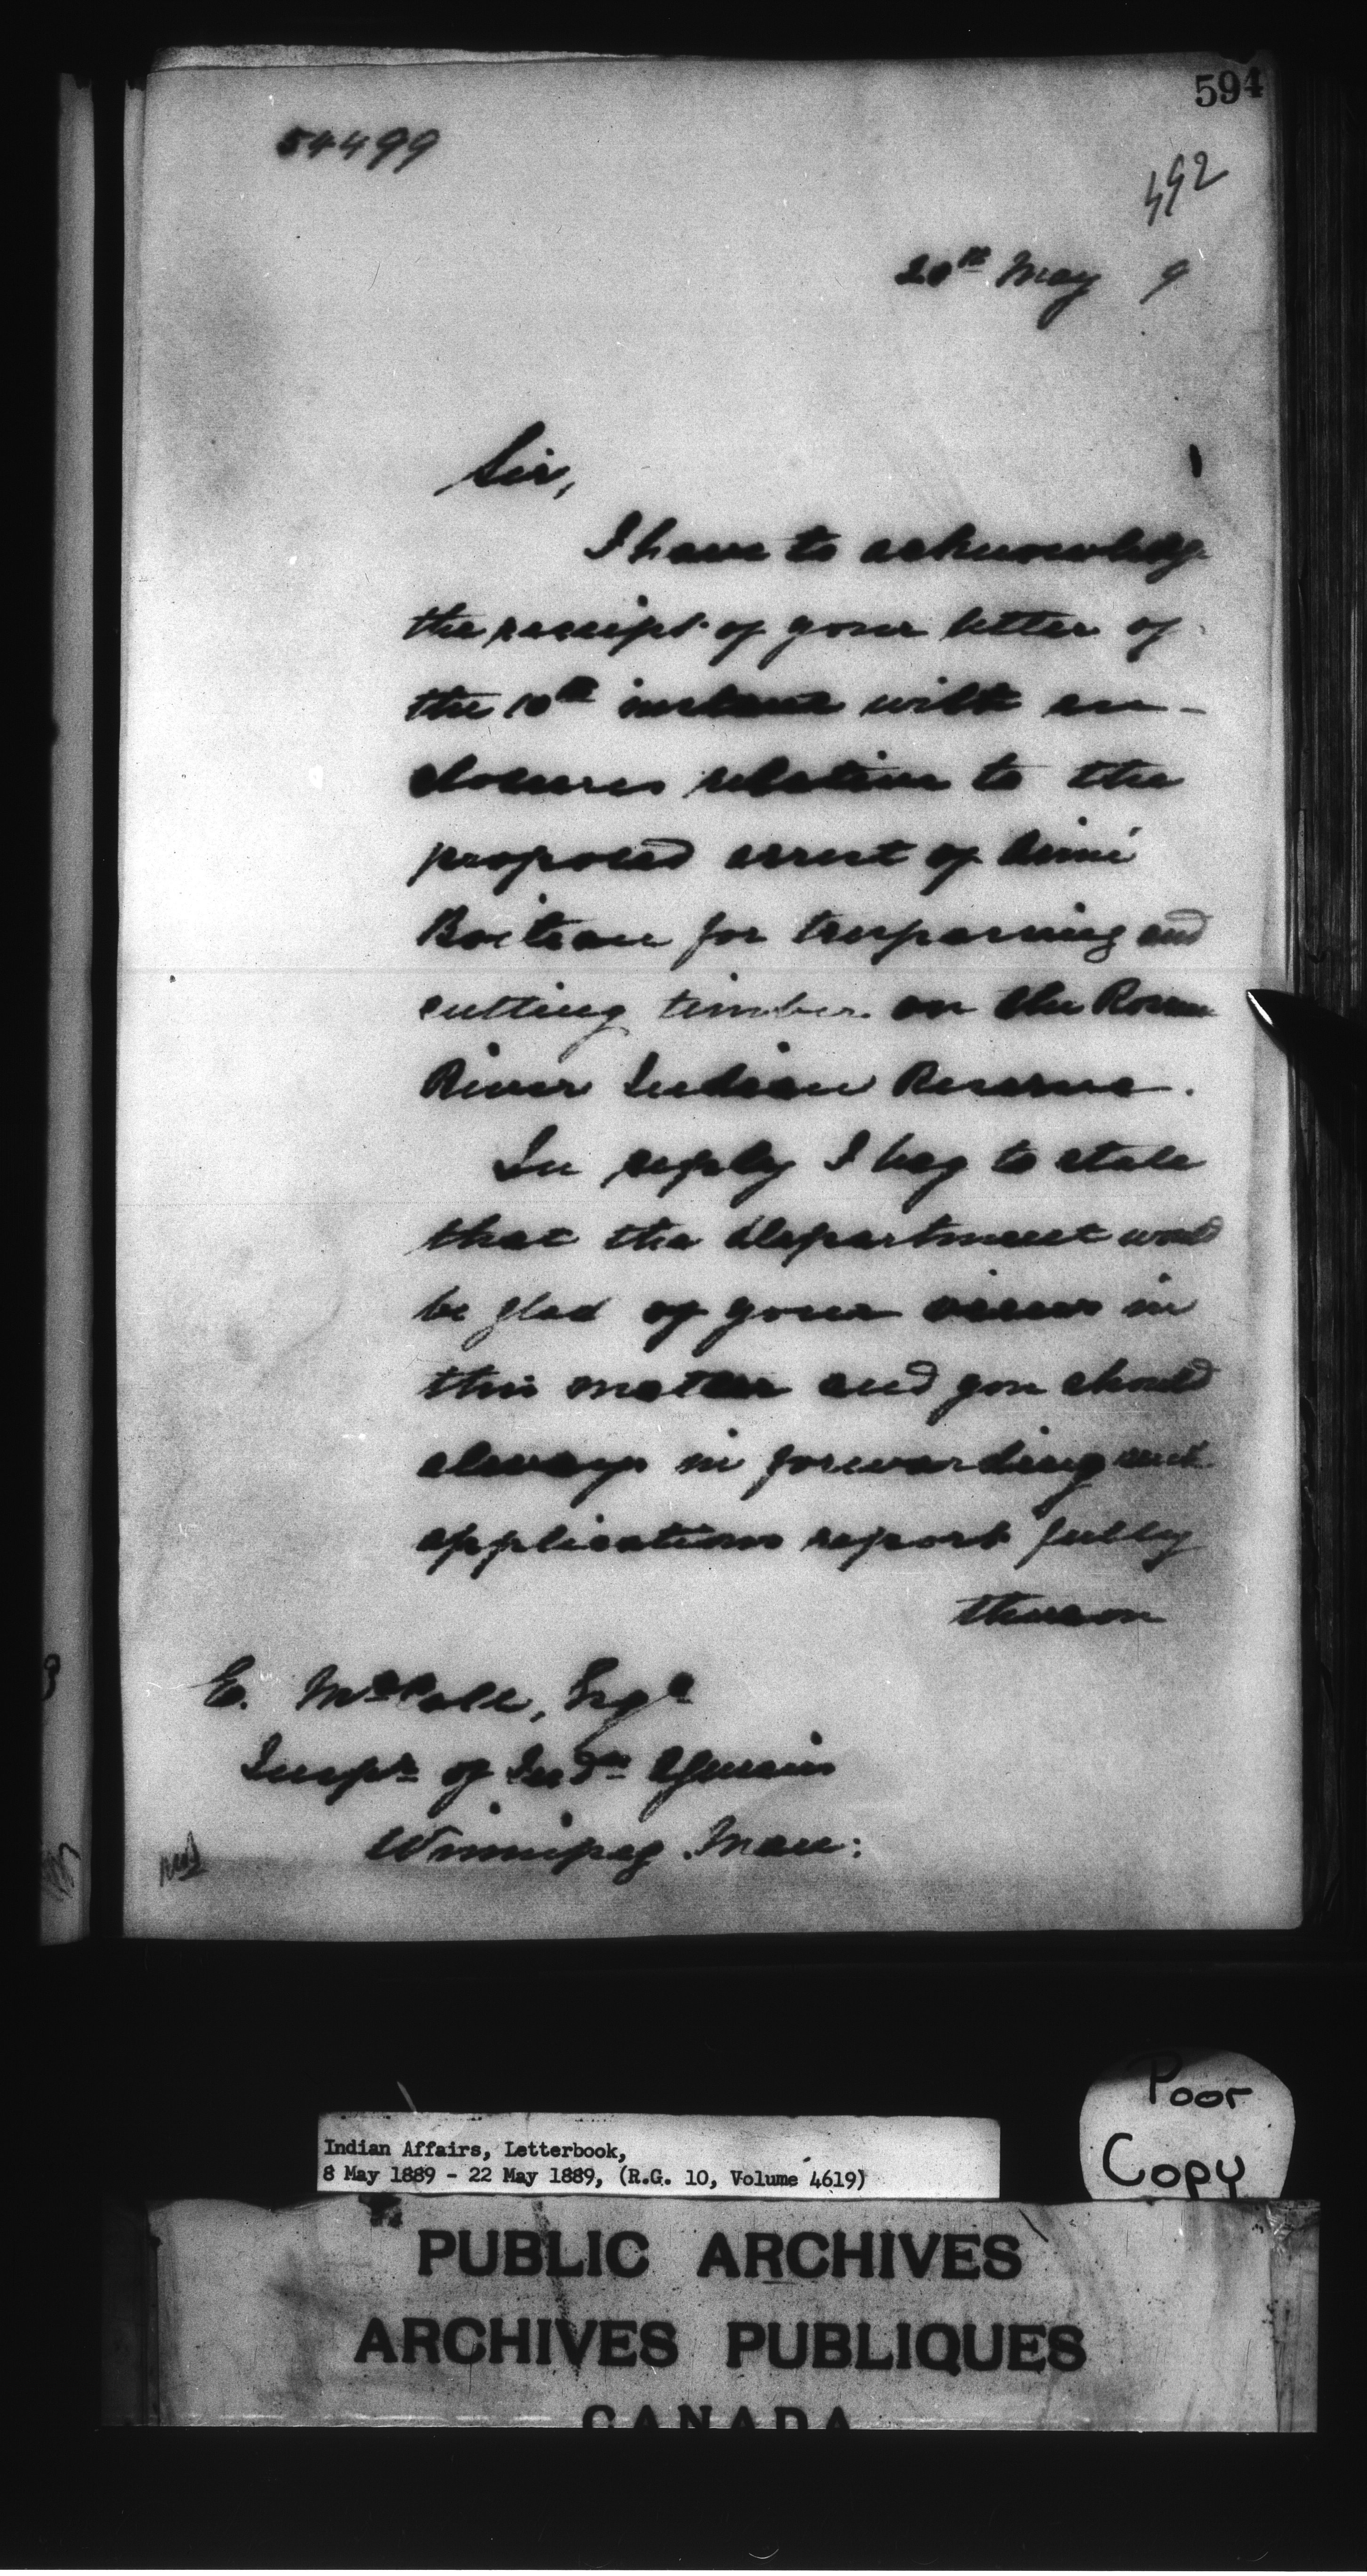 594
54499
492
20th May 9
Sir,
I have to acknowledge
the receipt of your letter of
the 10th instant with en-
closures relative to the
proposed arrest of Aimé
Boiteau for trespassing and
cutting timber on the Roseau
River Indian Reserve.
In reply I beg to state
that the Department would
be glad of your views in
this matter and you should
always in forwarding such
applications report fully
thereon
E. McColl, Esqr
Inspr of Indn Agencies
Winnipeg Man:
Poor
Copy
Indian Affairs, Letterbook,
8 May 1889 - 22 May 1889, (R.G. 10, Volume 4619)
PUBLIC ARCHIVES
ARCHIVES PUBLIQUES
CANADA